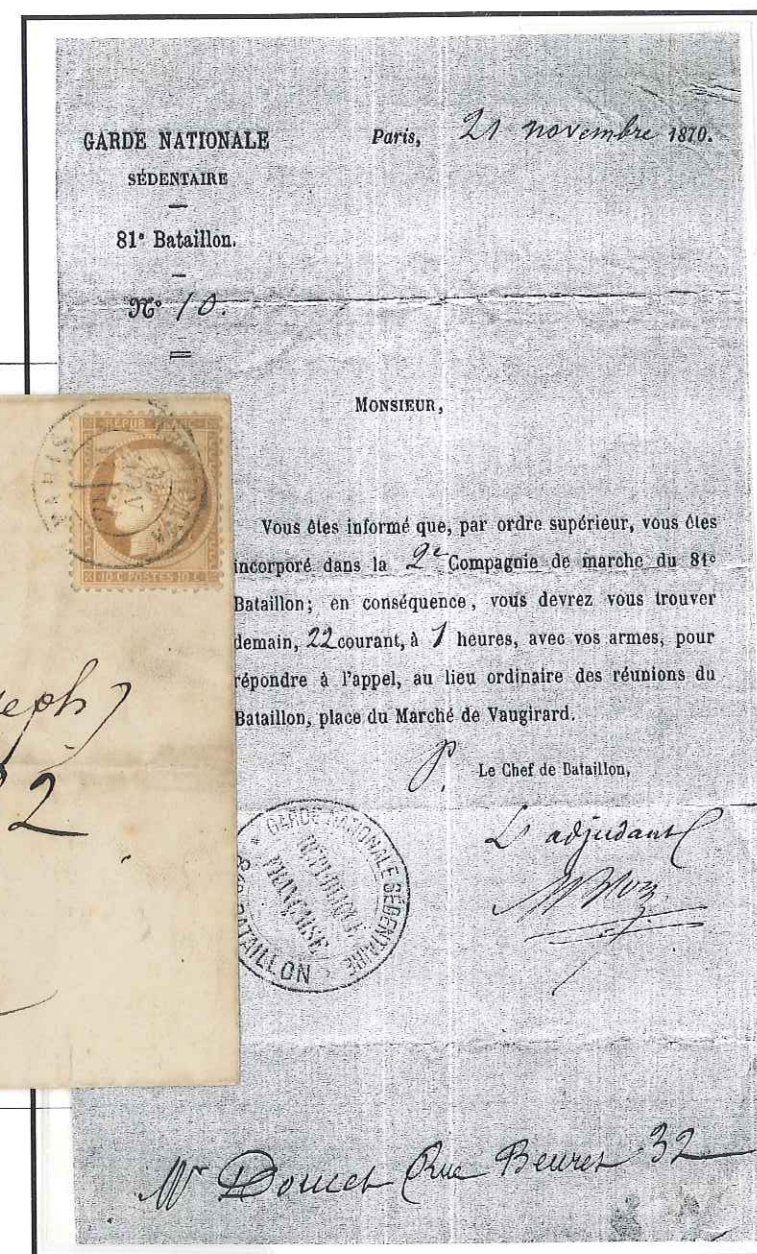 GARDE NATIONALE
SÉDENTAIRE
81e Bataillon.
No 10.
Paris, 21 novembre 1870.
MONSIEUR,
Vous êtes informé que, par ordre supérieur, vous êtes
incorporé dans la 2e Compagnie de marche du 81e
Bataillon; en conséquence, vous devrez vous trouver
demain, 22 courant, à 1 heures, avec vos armes, pour
répondre à l'appel, au lieu ordinaire des réunions du
Bataillon, place du Marché de Vaugirard.
P. Le Chef de Bataillon,
L'adjudant
GARDE NATIONALE SÉDENTAIRE
RÉPUBLIQUE
FRANÇAISE
81e BATAILLON
Mr Doucet Rue Beuret 32
REPUB. FRANC.
10 C POSTES 10 C
PARIS
eph)
2